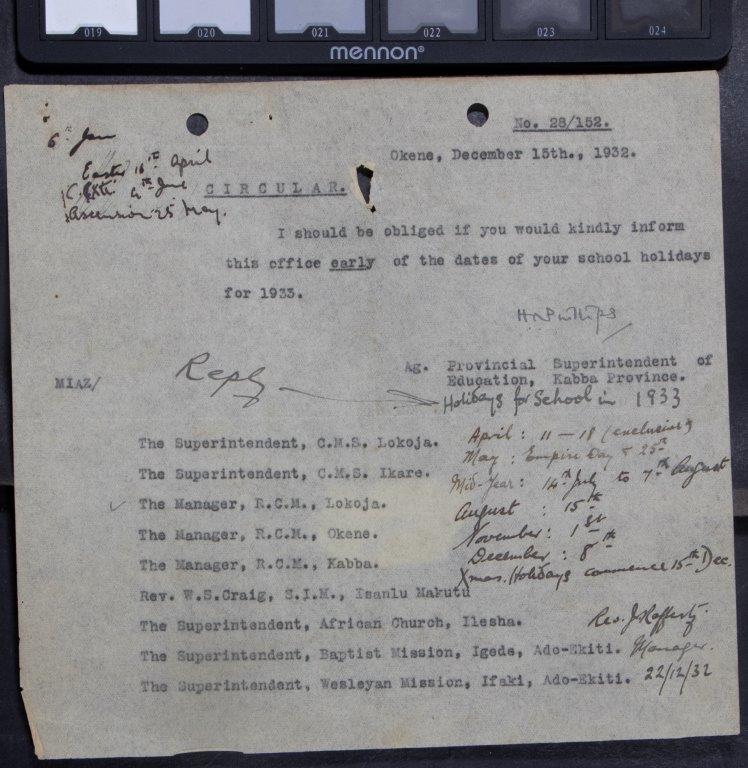 019 020 021 022 023 024
mennon®
No. 28/152.
Okene, December 15th., 1932.
6th Jan
Easter 16th April
4th June
Ascension 25 May.
CIRCULAR.
I should be obliged if you would kindly inform
this office early of the dates of your school holidays
for 1933.
Phillips
Ag. Provincial Superintendent of
Education, Kabba Province.
MIAZ/
Reply
Holidays for School in 1933
April: 11 – 18 (exclusive)
May: Empire Day & 25th
Mid-Year: 14th July to 7th August
August : 15th
November: 1st
December: 8th
Xmas. Holidays commence 15th Dec.
Rev. J. Rafferty.
Manager.
22/12/32
The Superintendent, C.M.S. Lokoja.
The Superintendent, C.M.S. Ikare.
The Manager, R.C.M., Lokoja.
The Manager, R.C.M., Okene.
The Manager, R.C.M., Kabba.
Rev. W.S.Craig, S.I.M., Isanlu Makutu
The Superintendent, African Church, Ilesha.
The Superintendent, Baptist Mission, Igede, Ado-Ekiti.
The Superintendent, Wesleyan Mission, Ifaki, Ado-Ekiti.